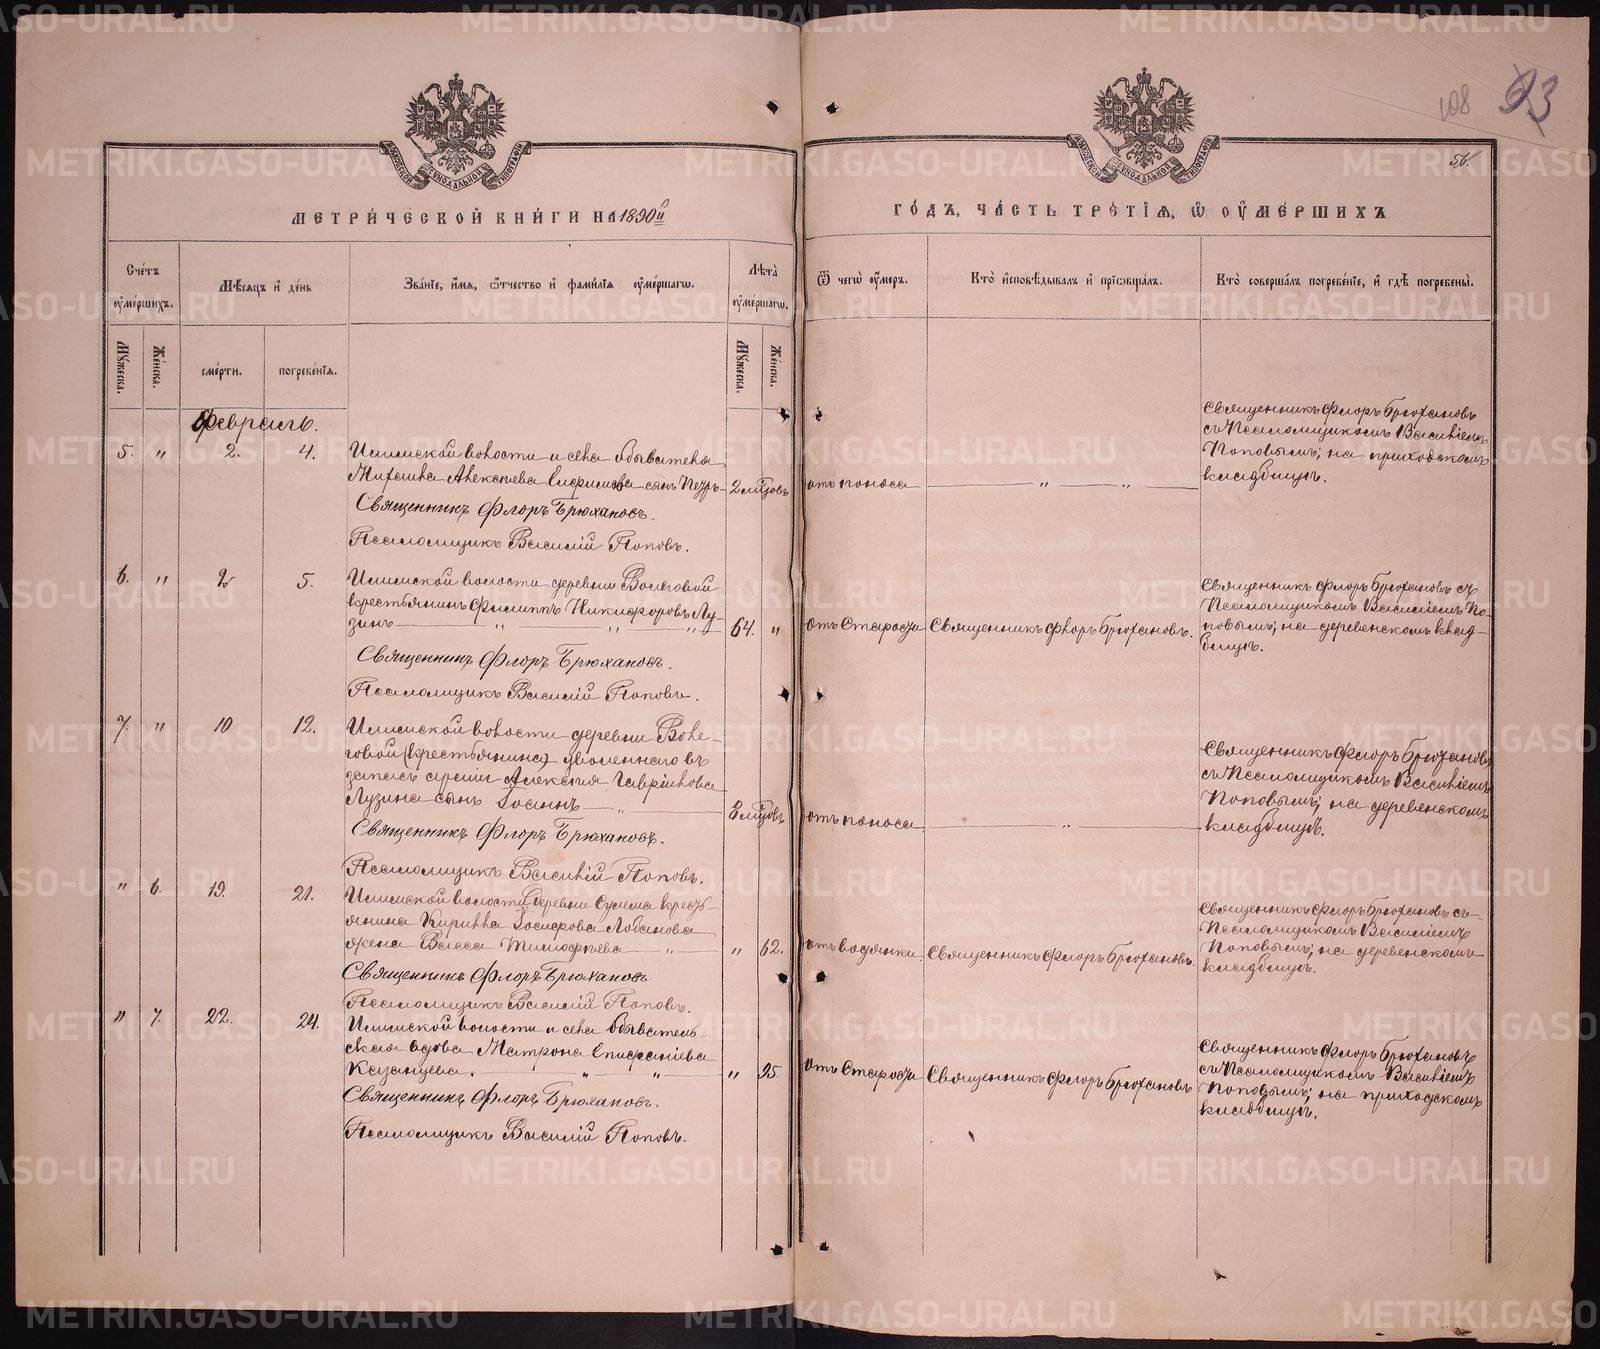 108 93
56.
МЕТРИ́ЧЕСКОЙ КНИ́ГИ НА 1890й
ГО́ДЪ, ЧА́СТЬ ТРЕ́ТІѦ, Ѽ ОУМЕ́РШИХЪ
Сче́тъ оуме́ршихъ.
Мѣ́сѧцъ и́ де́нь
Зва́нїе, и́мѧ, ѻ҆́тчество и҆ фами́лїѧ оуме́ршагѡ.
Лѣ́та оуме́ршагѡ.
Ѿ чегѡ̀ оу́меръ.
Кто̀ и҆сповѣ́дывалъ и҆ прїѡбща́лъ.
Кто̀ соверша́лъ погребе́нїе, и҆ гдѣ̀ погребены̀.
Мꙋ́жеска.
Же́нска.
сме́рти.
погребе́нїѧ.
Мꙋ́жеска.
Же́нска.
Февраль.
5. " 2. 4.
Илимской волости и села обывателя
Михаила Алексѣева сынъ Петръ
Священникъ Флоръ Брюхановъ.
Псаломщикъ Василій Поповъ.
2 мѣсяцовъ
отъ поноса
" "
Священникъ Флоръ Брюхановъ
съ Псаломщикомъ Василіемъ
Поповымъ; на приходскомъ
кладбищѣ.
6. " 2 5.
Илимской волости деревни Волеговой
крестьянинъ Филиппъ Никифоровъ Лу-
зинъ " " "
Священникъ Флоръ Брюхановъ.
Псаломщикъ Василій Поповъ.
64. "
отъ Старости
Священникъ Флоръ Брюхановъ.
Священникъ Флоръ Брюхановъ съ
Псаломщикомъ Василіемъ По-
повымъ; на деревенскомъ клад-
бищѣ.
7. " 10 12.
Илимской волости деревни Воле-
говой (крестьянина) уволеннаго въ
запасъ арміи Алексѣя Гавріилова
Лузина сынъ Іоаннъ "
Священникъ Флоръ Брюхановъ.
Псаломщикъ Василій Поповъ.
мѣсяцовъ
отъ поноса
"
Священникъ Флоръ Брюхановъ
съ Псаломщикомъ Василіемъ
Поповымъ; на деревенскомъ
кладбищѣ.
" 6. 19. 21.
Илимской волости, деревни Сулема кресть-
янина Кирилла Іосифова Лобанова
жена Васса Тимофѣева "
Священникъ Флоръ Брюхановъ.
Псаломщикъ Василій Поповъ.
" 62.
отъ водянки
Священникъ Флоръ Брюхановъ.
Священникъ Флоръ Брюхановъ съ
Псаломщикомъ Василіемъ
Поповымъ; на деревенскомъ
кладбищѣ.
" 7. 22. 24.
Илимской волости и села обыватель-
ская вдова Матрона Епифаніева
Казанцева. " "
Священникъ Флоръ Брюхановъ.
Псаломщикъ Василій Поповъ.
" 95.
отъ Старости
Священникъ Флоръ Брюхановъ
Священникъ Флоръ Брюхановъ
съ Псаломщикомъ Василіемъ
Поповымъ; на приходскомъ
кладбищѣ.